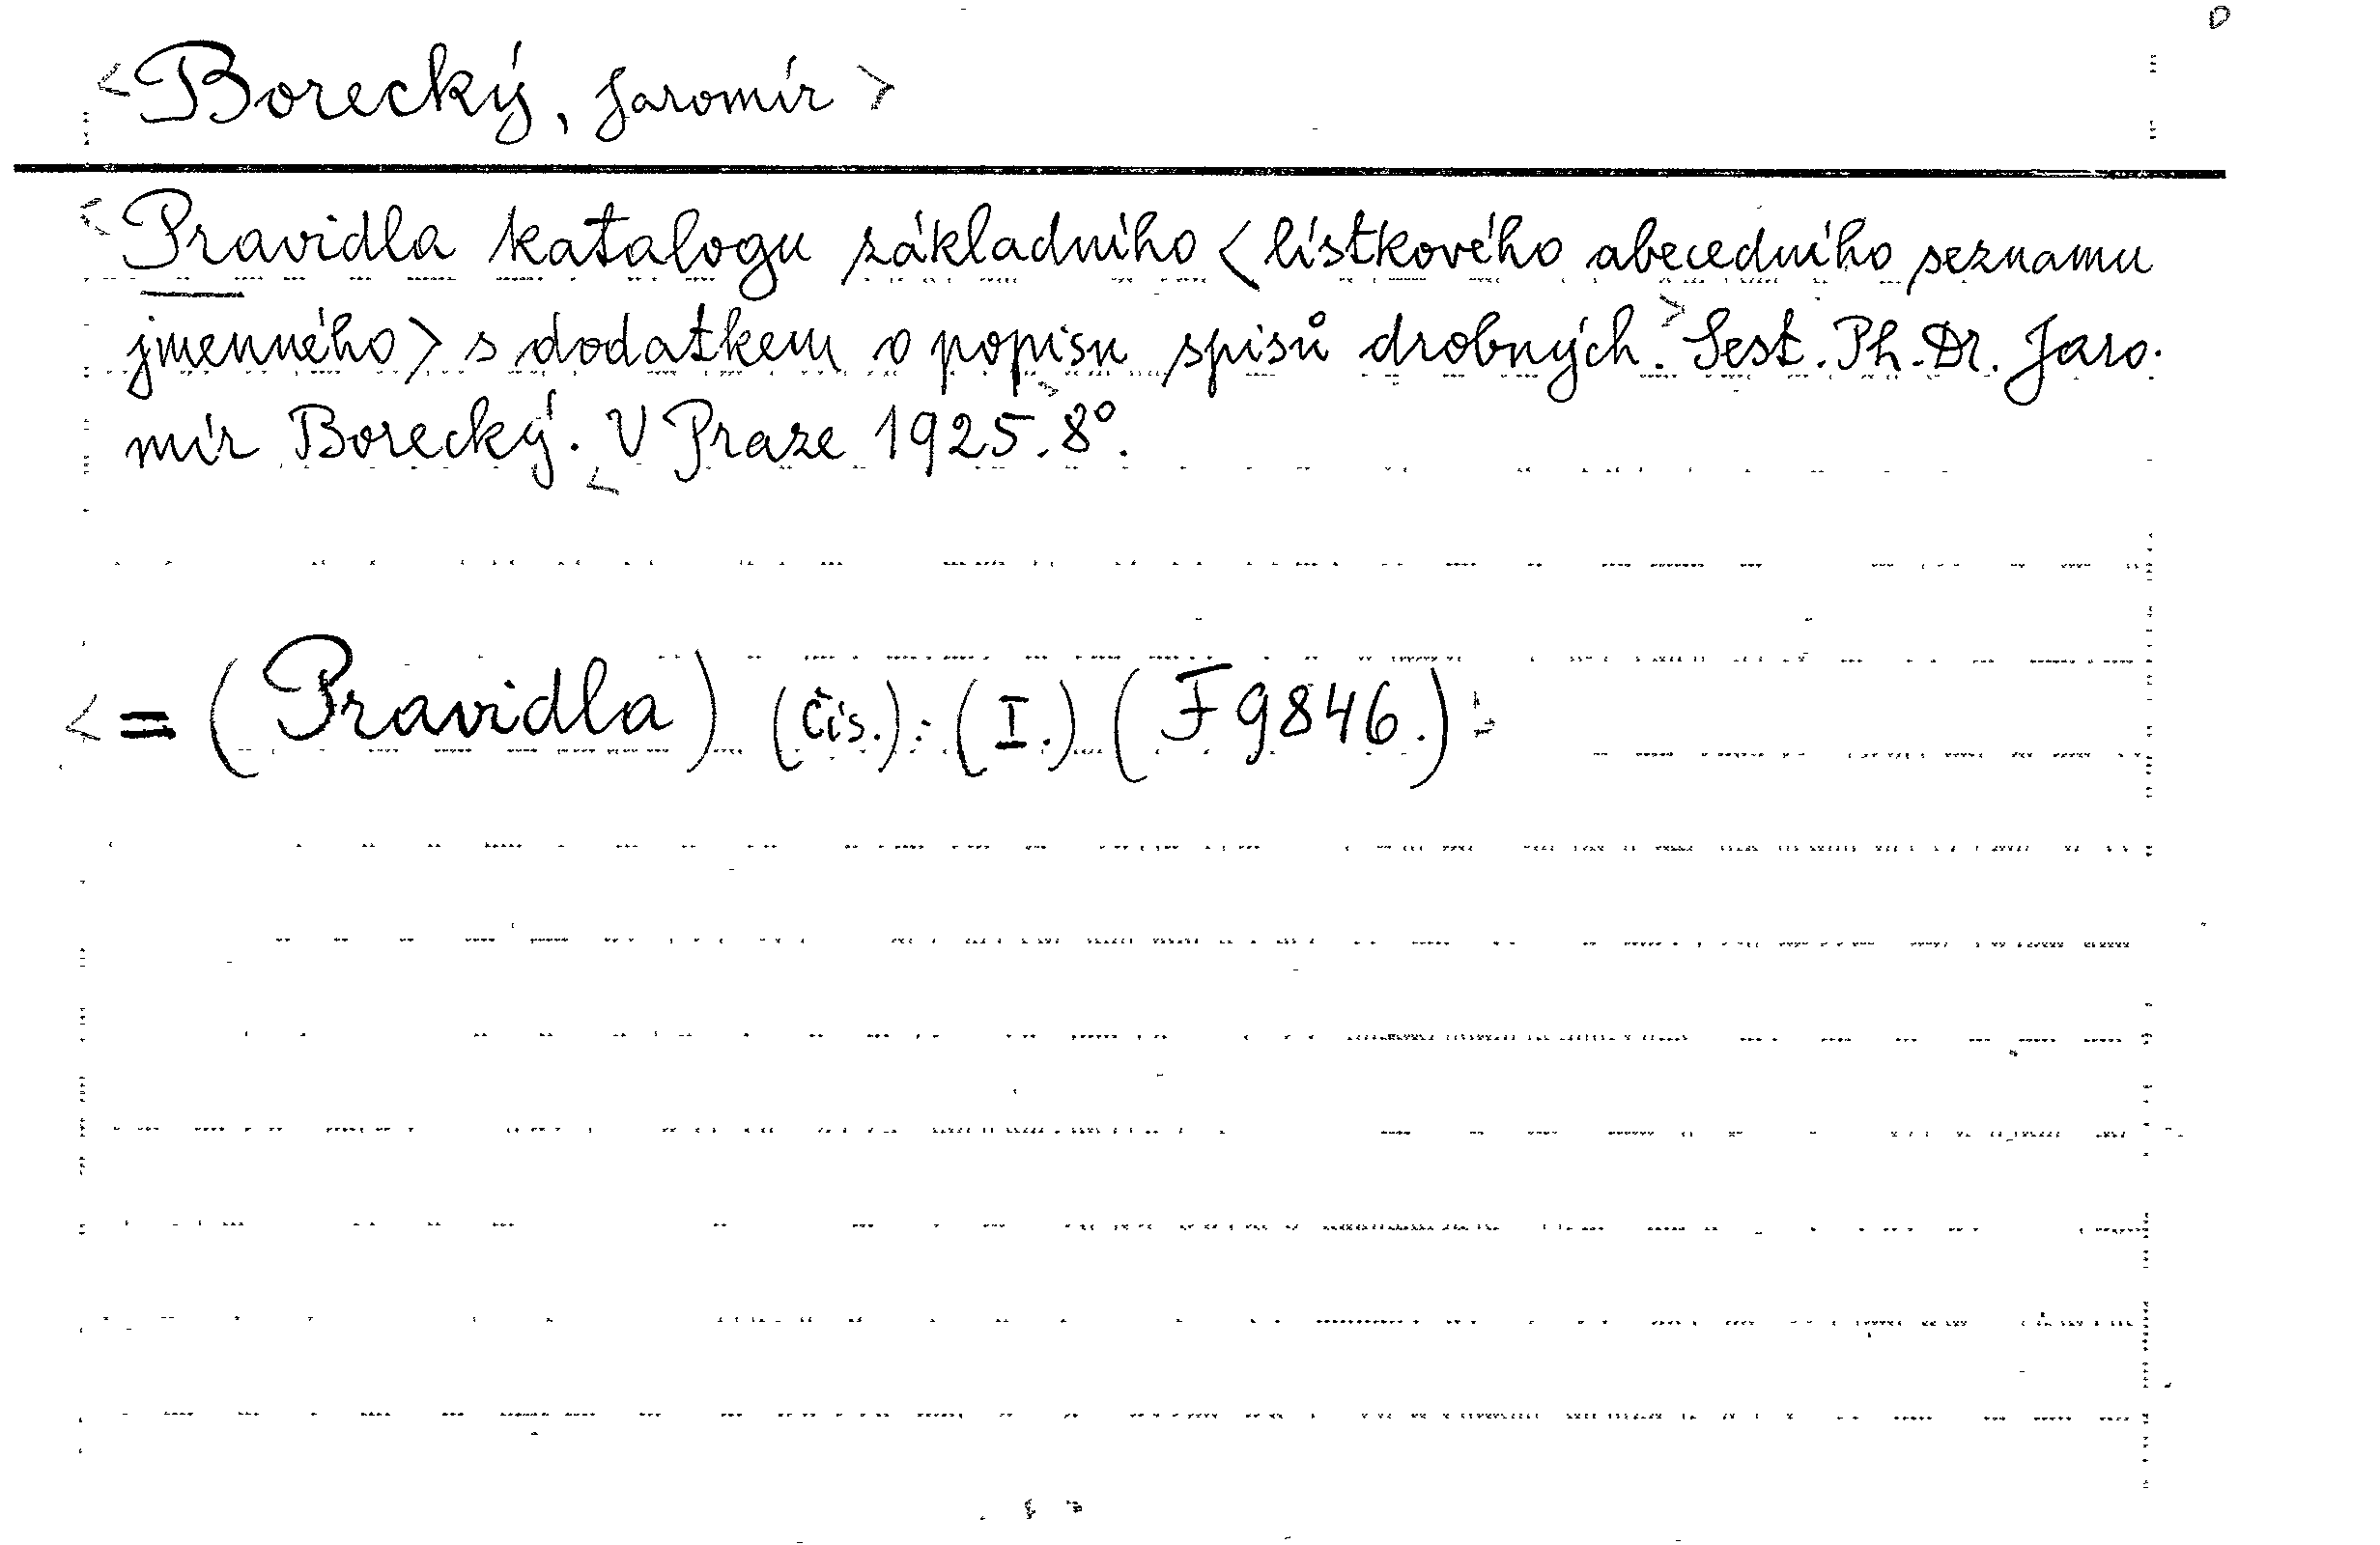 <Borecký, Jaromír>
<Pravidla katalogu základního <lístkového abecedního seznamu
jmenného> s dodatkem o popisu spisů drobných.> Sest. Ph. Dr. Jaro-
mír Borecký. <V Praze 1925.> 8°.
<= (Pravidla) (Čís.): (I.) (F 9846.)>